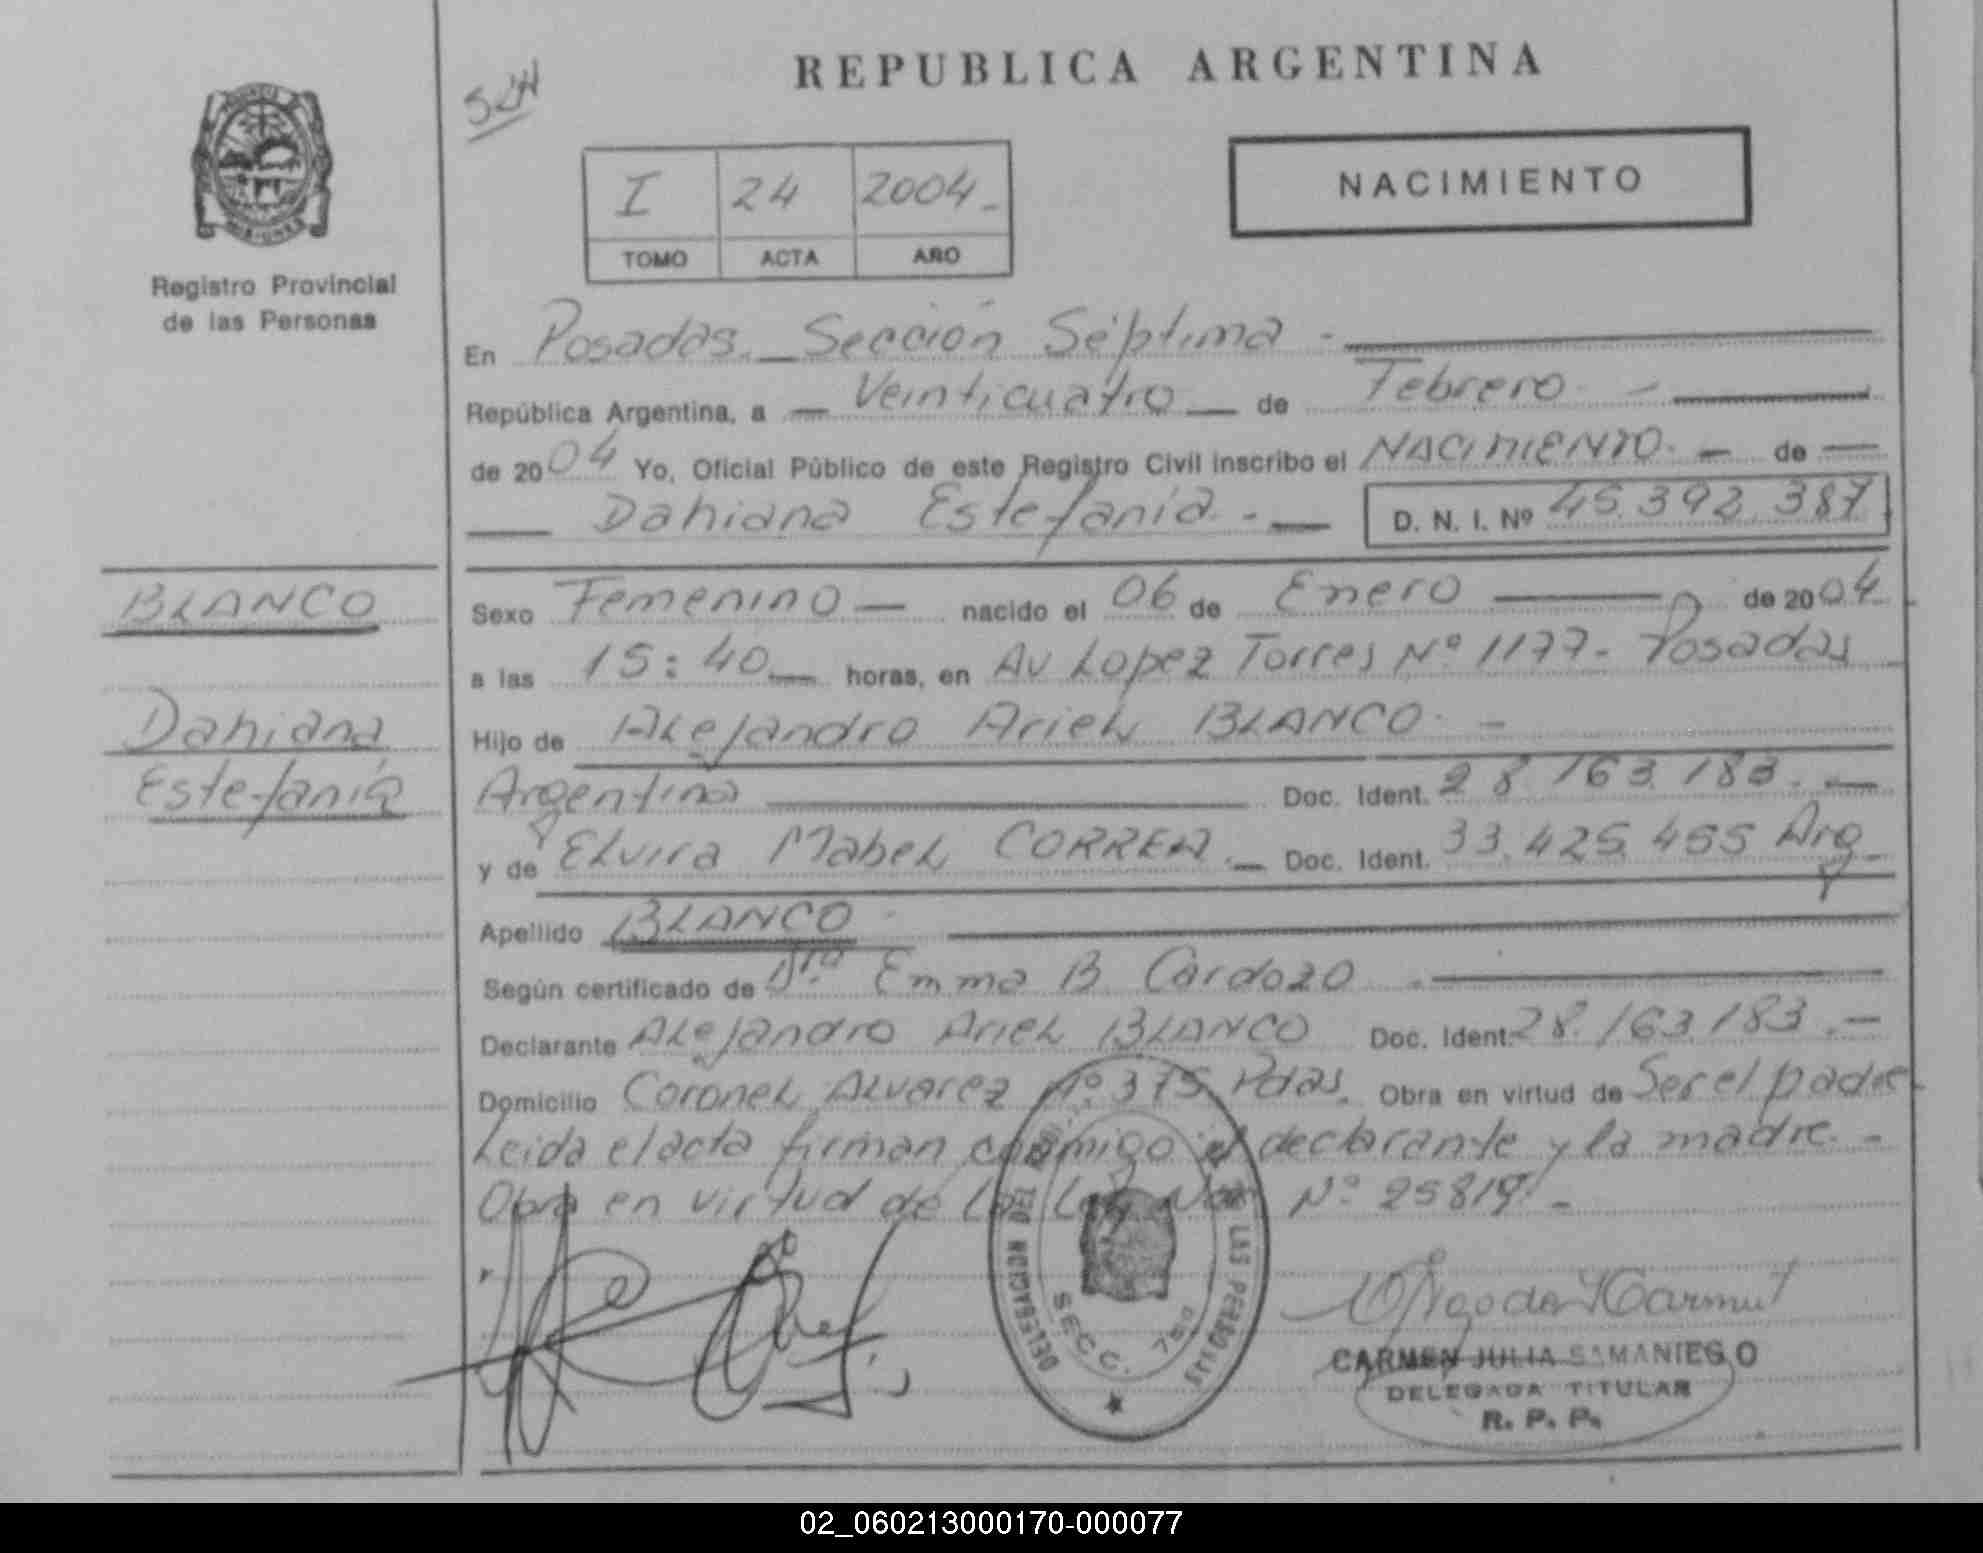 REPUBLICA ARGENTINA
524
I 24 2004
TOMO ACTA AÑO
NACIMIENTO
Registro Provincial
de las Personas
En Posadas. Sección Séptima
República Argentina, a Veinticuatro de Febrero
de 2004 Yo, Oficial Público de este Registro Civil inscribo el NACIMIENTO de
Dahiana Estefanía D. N. I. Nº 45.392.387
BLANCO
Dahiana
Estefanía
Sexo Femenino nacido el 06 de Enero de 2004
a las 15:40 horas, en Av Lopez Torres Nº 1177- Posadas
Hijo de Alejandro Ariel BLANCO
Argentino Doc. Ident. 28.163.183
y de Elvira Mabel CORREA Doc. Ident. 33.425.455 Arg
Apellido BLANCO
Según certificado de Dra Emma B. Cardozo
Declarante Alejandro Ariel BLANCO Doc. Ident. 28.163.183
Domicilio Coronel Alvarez Nº 375 Pdas. Obra en virtud de Ser el padre
Leida el acta firman conmigo el declarante y la madre.
Obra en virtud de la Ley Nac Nº 25819.
DELEGACION DEL LAS PERSONAS
SECC. 7ma
CARMEN JULIA SAMANIEGO
DELEGADA TITULAR
R. P. P.
02_060213000170-000077